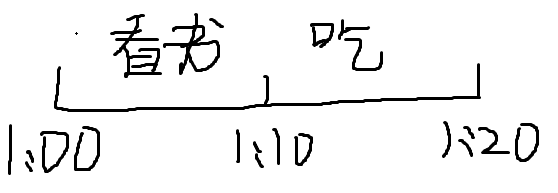 看书 吃
1:00 1:10 1:20